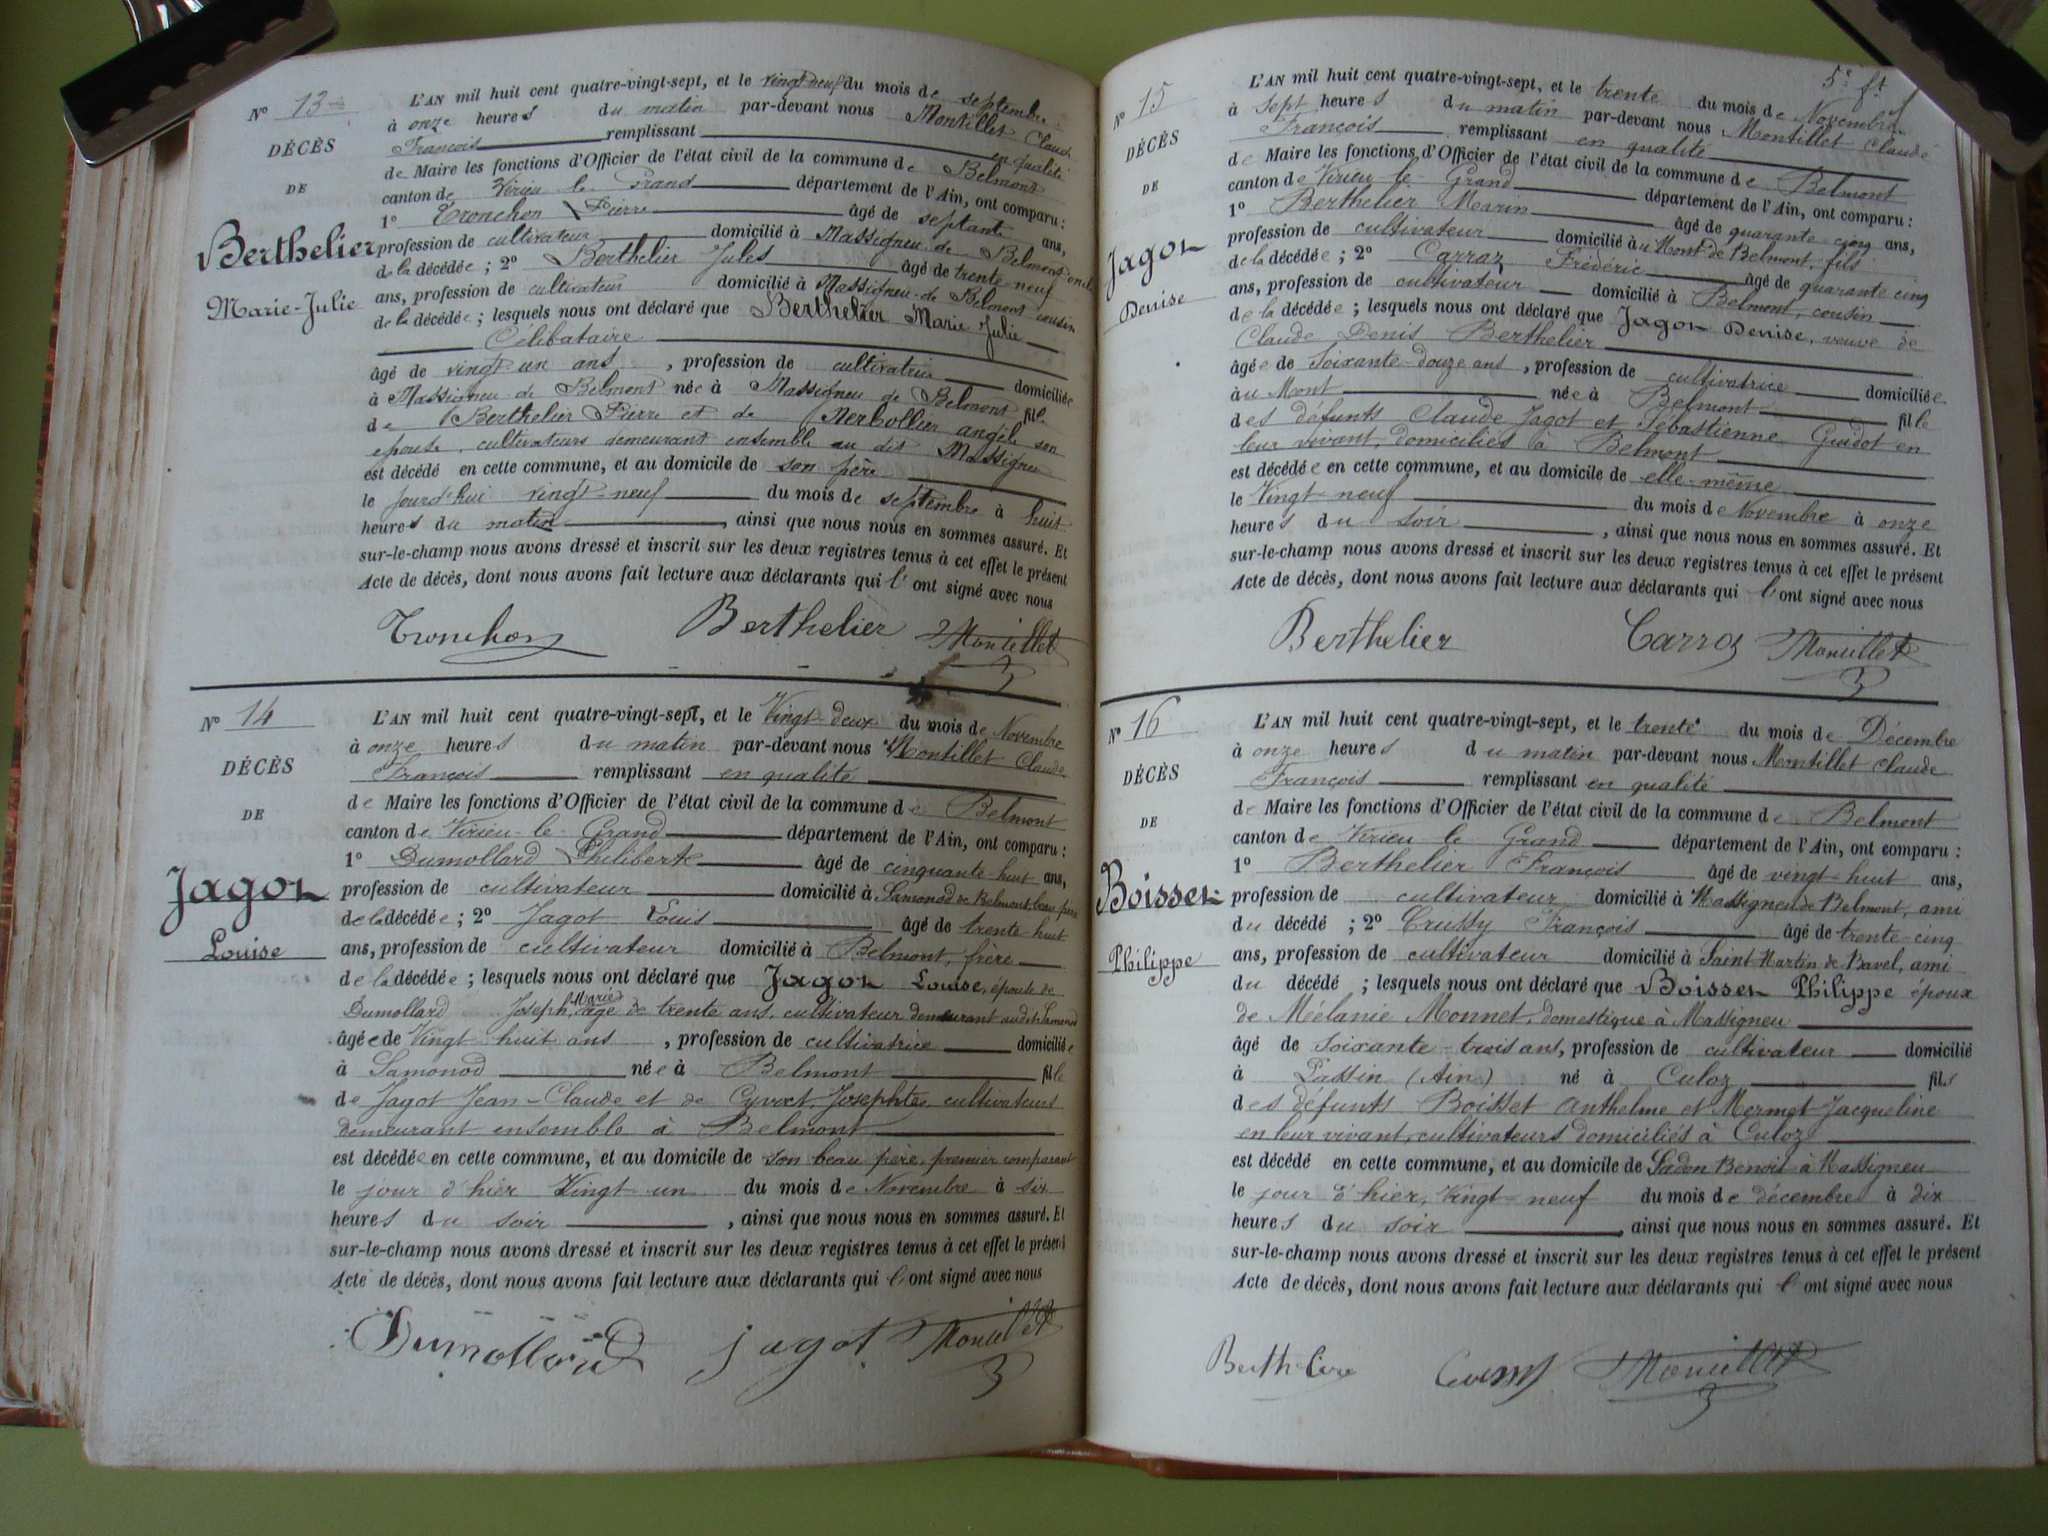 N° 13
DÉCÈS
DE
Berthelier
Marie-Julie
L'AN mil huit cent quatre-vingt-sept, et le vingt neuf du mois de septembre
à onze heures du matin par-devant nous Montillet Claude
François remplissant en qualité
de Maire les fonctions d'Officier de l'état civil de la commune de Belmont
canton de Virieu le Grand département de l'Ain, ont comparu :
1° Tronchon Pierre âgé de septante ans,
profession de cultivateur domicilié à Massigneu de Belmont oncle
de la décédée ; 2° Berthelier Jules âgé de trente neuf
ans, profession de cultivateur domicilié à Massigneu de Belmont cousin
de la décédée ; lesquels nous ont déclaré que Berthelier Marie Julie
Célibataire
âgé de vingt un ans , profession de cultivatrice domiciliée
à Massigneu de Belmont née à Massigneu de Belmont fille
de Berthelier Pierre et de angèle son
épouse, cultivateurs demeurant ensemble au dit Massigneu
est décédé en cette commune, et au domicile de son père
le jourd'hui vingt-neuf du mois de septembre à huit
heures du matin , ainsi que nous nous en sommes assuré. Et
sur-le-champ nous avons dressé et inscrit sur les deux registres tenus à cet effet le présent
Acte de décès, dont nous avons fait lecture aux déclarants qui l'ont signé avec nous
Tronchon Berthelier Montillet
N° 14
DÉCÈS
DE
Jagot
Louise
L'AN mil huit cent quatre-vingt-sept, et le Vingt-deux du mois de Novembre
à onze heures du matin par-devant nous Montillet Claude
François remplissant en qualité
de Maire les fonctions d'Officier de l'état civil de la commune de Belmont
canton de Virieu-le-Grand département de l'Ain, ont comparu :
1° Dumollard Philiberte âgé de cinquante-huit ans,
profession de cultivateur domicilié à Samonod de Belmont, beau père
de la décédée ; 2° Jagot Louis âgé de trente-huit
ans, profession de cultivateur domicilié à Belmont, frère
de la décédée ; lesquels nous ont déclaré que Jagot Louise, épouse de
Dumollard Joseph, Marie âgé de trente ans, cultivateur demeurant audit Samonod
âgée de Vingt huit ans , profession de cultivatrice domiciliée
à Samonod née à Belmont fille
de Jagot Jean-Claude et de Josephte, cultivateurs
demeurant ensemble à Belmont
est décédée en cette commune, et au domicile de son beau père, premier comparant
le jour d'hier Vingt un du mois de Novembre à six
heures du soir , ainsi que nous nous en sommes assuré. Et
sur-le-champ nous avons dressé et inscrit sur les deux registres tenus à cet effet le présent
Acte de décès, dont nous avons fait lecture aux déclarants qui l'ont signé avec nous
Dumollard jagot Montillet
5e ft
N° 15
DÉCÈS
DE
Jagot
Denise
L'AN mil huit cent quatre-vingt-sept, et le trente du mois de Novembre
à sept heures du matin par-devant nous Montillet Claude
François remplissant en qualité
de Maire les fonctions d'Officier de l'état civil de la commune de Belmont
canton de Virieu-le-Grand département de l'Ain, ont comparu :
1° Berthelier Marin âgé de quarante-cinq ans,
profession de cultivateur domicilié au Mont de Belmont, fils
de la décédée ; 2° Carraz Frédéric âgé de quarante cinq
ans, profession de cultivateur domicilié à Belmont, cousin
de la décédée ; lesquels nous ont déclaré que Jagot Denise, veuve de
Claude Denis Berthelier
âgée de Soixante-douze ans , profession de cultivatrice domiciliée
au Mont née à Belmont fille
des défunts Claude Jagot et Sébastienne Guidot en
leur vivant, domiciliés à Belmont
est décédée en cette commune, et au domicile de elle-même
le Vingt-neuf du mois de Novembre à onze
heures du soir , ainsi que nous nous en sommes assuré. Et
sur-le-champ nous avons dressé et inscrit sur les deux registres tenus à cet effet le présent
Acte de décès, dont nous avons fait lecture aux déclarants qui l'ont signé avec nous
Berthelier Carraz Montillet
N° 16
DÉCÈS
DE
Boisset
Philippe
L'AN mil huit cent quatre-vingt-sept, et le trente du mois de Décembre
à onze heures du matin par-devant nous Montillet Claude
François remplissant en qualité
de Maire les fonctions d'Officier de l'état civil de la commune de Belmont
canton de Virieu le Grand département de l'Ain, ont comparu :
1° Berthelier François âgé de vingt-huit ans,
profession de cultivateur domicilié à Massigneu de Belmont, ami
du décédé ; 2° François âgé de trente-cinq
ans, profession de cultivateur domicilié à Saint Martin de Bavel, ami
du décédé ; lesquels nous ont déclaré que Boisset Philippe époux
de Mélanie Monnet, domestique à Massigneu
âgé de Soixante-trois ans, profession de cultivateur domicilié
à Passin (Ain) né à Culoz fils
des défunts Boisset Anthelme et Mermet Jacqueline
en leur vivant, cultivateurs domiciliés à Culoz
est décédé en cette commune, et au domicile de Benoit à Massigneu
le jour d'hier, Vingt-neuf du mois de décembre à dix
heures du soir , ainsi que nous nous en sommes assuré. Et
sur-le-champ nous avons dressé et inscrit sur les deux registres tenus à cet effet le présent
Acte de décès, dont nous avons fait lecture aux déclarants qui l'ont signé avec nous
Montillet